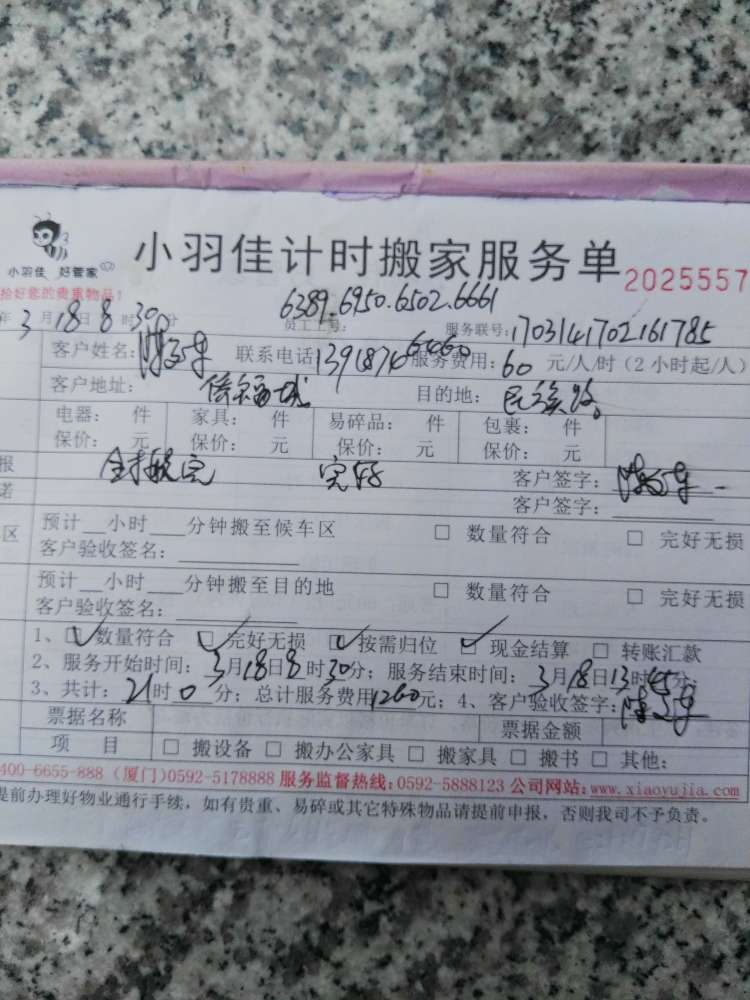 小羽佳 好管家
小羽佳计时搬家服务单 2025557
拾好您的贵重物品!
6389.6950.6502.6661
年 3月18日8时30分 员工工号: 服务联号:1703141702161785
客户姓名: 联系电话:1391874 6460 服务费用:60 元/人/时(2小时起/人)
客户地址: 目的地:民族路
电器: 件 家具: 件 易碎品: 件 包裹: 件
保价: 元 保价: 元 保价: 元 保价: 元
报 完好 客户签字:
诺 客户签字:
区 预计__小时___分钟搬至候车区 □ 数量符合 □ 完好无损
客户验收签名:
预计__小时___分钟搬至目的地 □ 数量符合 □ 完好无损
客户验收签名:
1、☑ 数量符合 ☑ 完好无损 ☑ 按需归位 ☑ 现金结算 □ 转账汇款
2、服务开始时间:3月18日8时30分;服务结束时间:3月18日13时45分;
3、共计:21时0分;总计服务费用1260元;4、客户验收签字:
票据名称 票据金额
项 目 □ 搬设备 □ 搬办公家具 □ 搬家具 □ 搬书 □ 其他:
400-6655-888 (厦门)0592-5178888 服务监督热线:0592-5888123 公司网站:www.xiaoyujia.com
提前办理好物业通行手续,如有贵重、易碎或其它特殊物品请提前申报,否则我司不予负责。